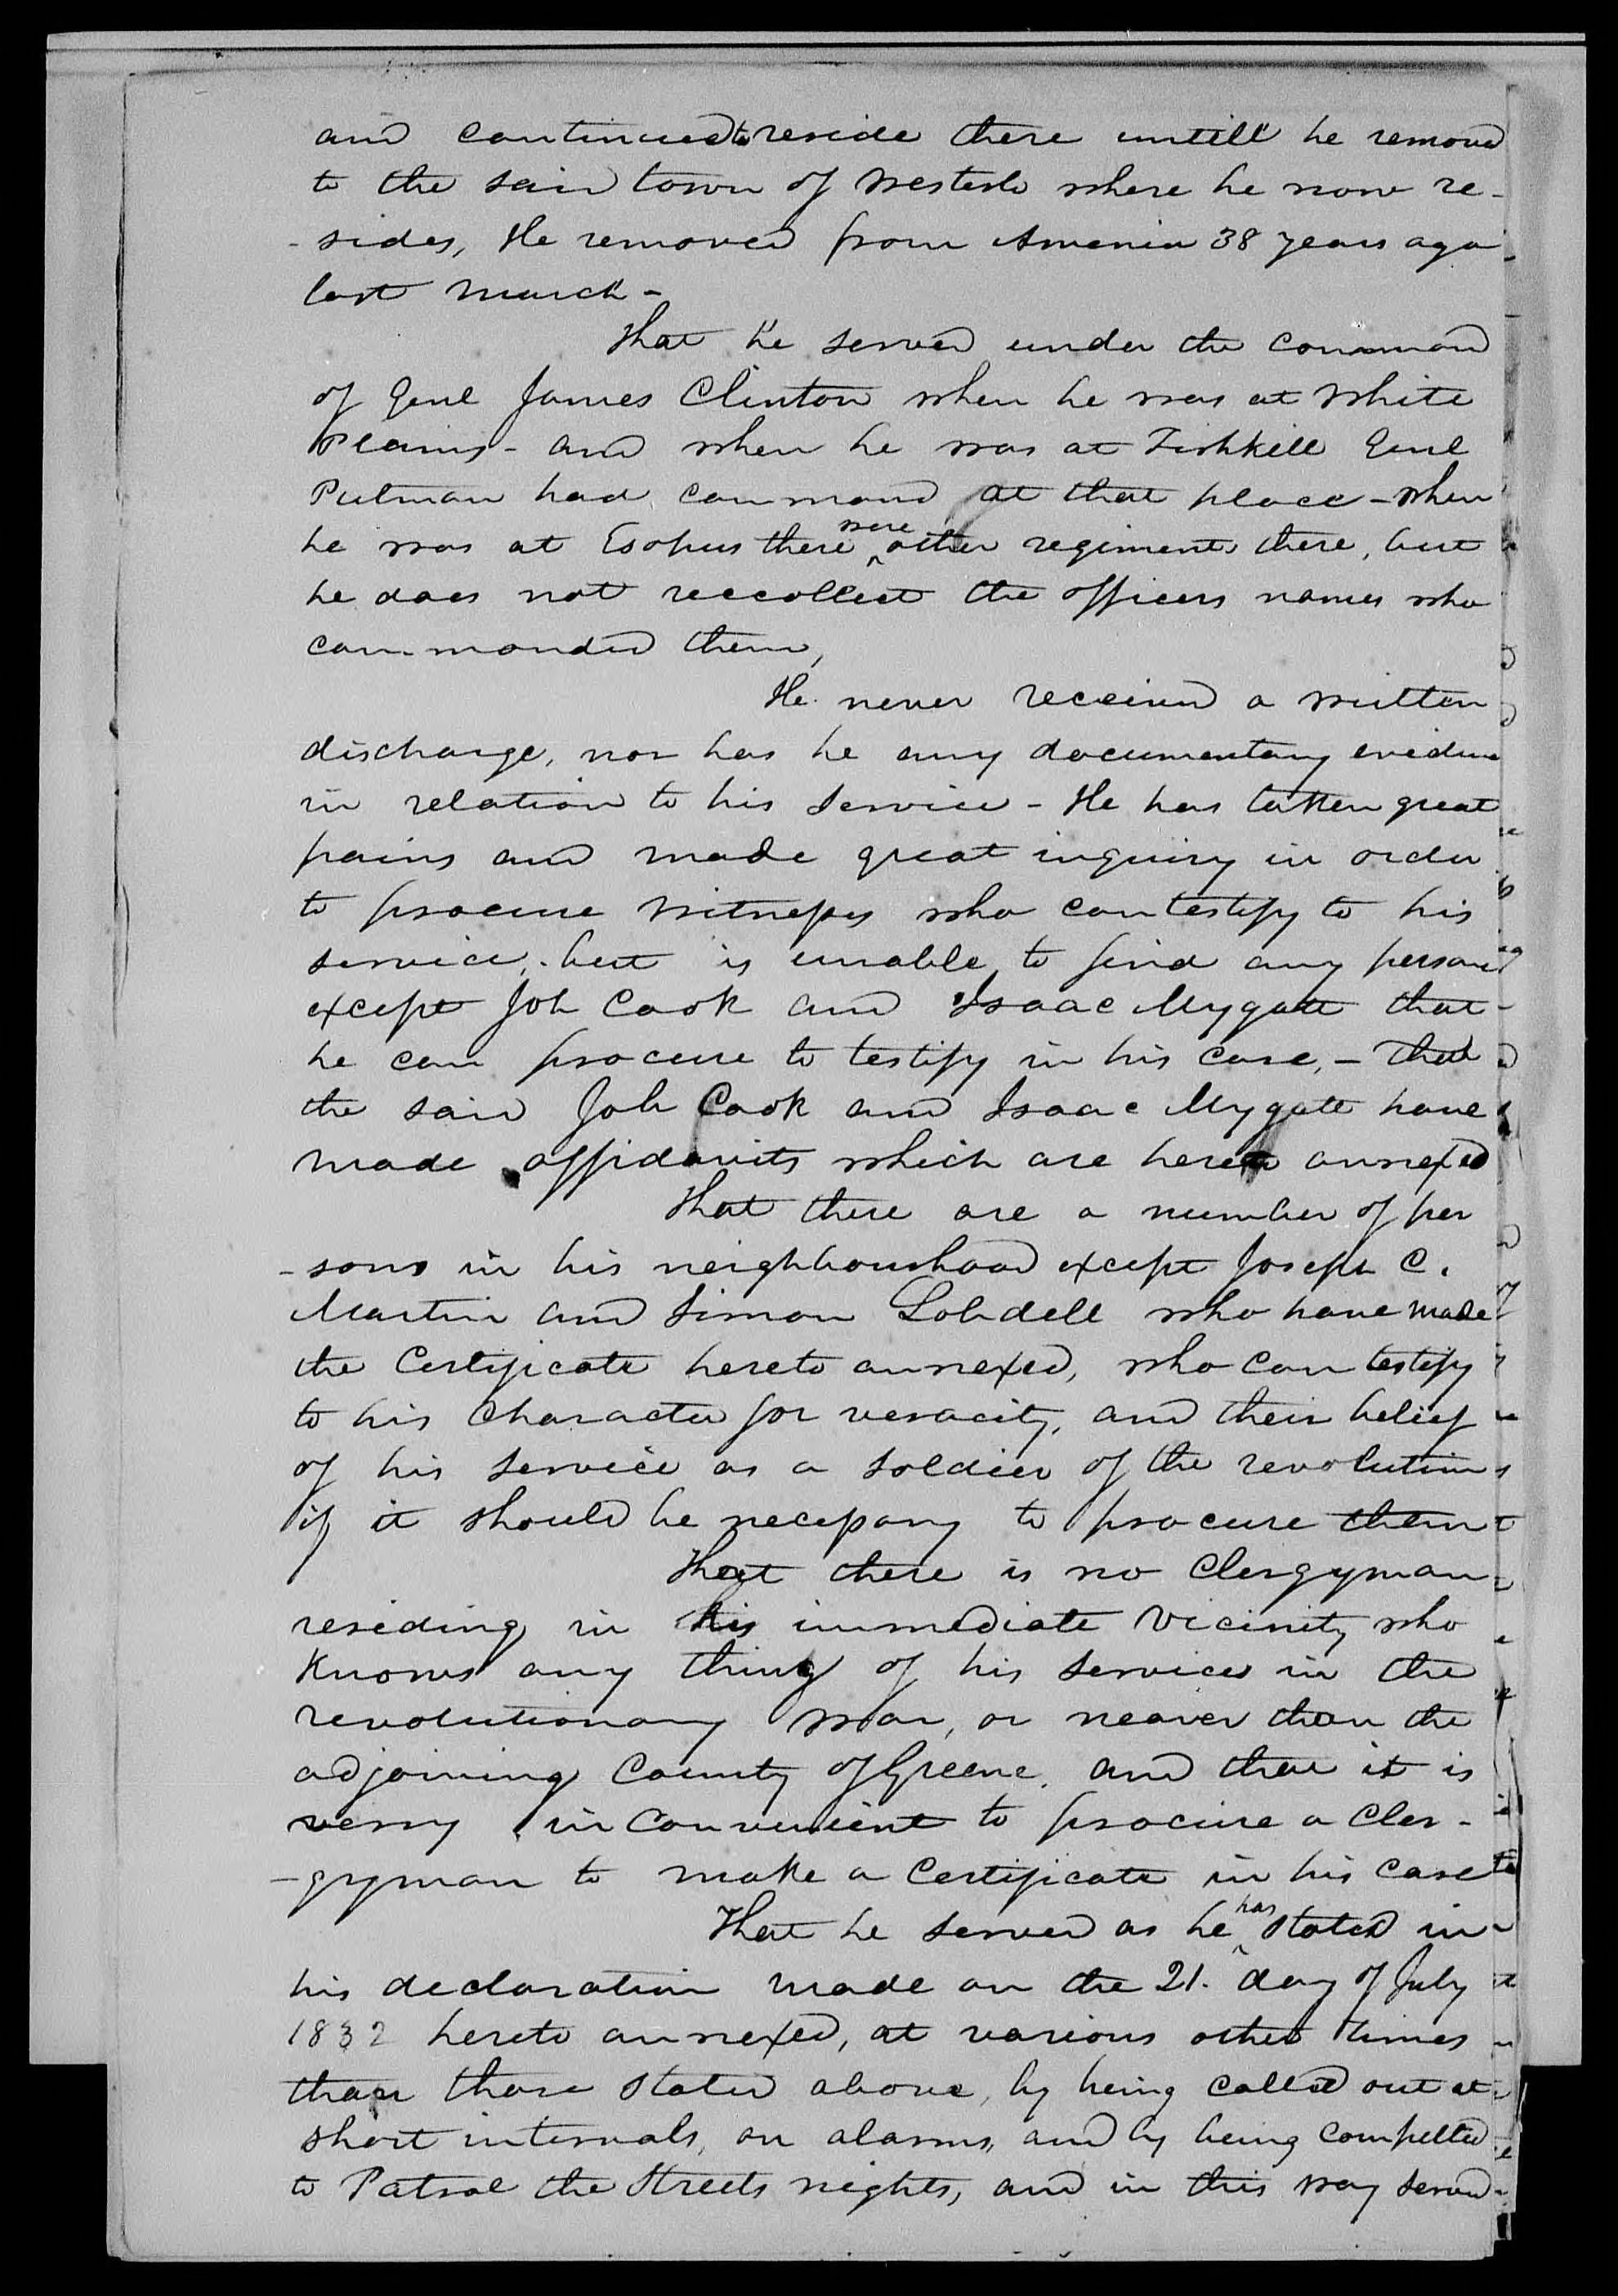 and continued to reside there untill he removed
to the said town of Westerlo where he now re-
- sides, He removed from Amenia 38 years ago
last March -
That he served under the command
of Genl James Clinton when he was at White
Plains - and when he was at Fishkill Genl
Putman had command at that place - when
he was at Esopus there were other regiments there, but
he does not reccollect the officers names who
commanded them,
He never received a written
discharge, nor has he any documentary evidence
in relation to his service - He has taken great
pains and made great inquiry in order
to procure witnesses who can testify to his
service, but is unable to find any person
except Job Cook and Isaac Mygatt that
he can procure to testify in his case, - That
the said Job Cook and Isaac Mygatt have
made affidavits which are hereto annexed
That there are a number of per
- sons in his neighbourhood except Joseph C.
Martin and Simon Lobdell who have made
the Certificate hereto annexed, who can testify
to his Character for veracity, and their belief
of his service as a soldier of the revolution
if it should be necessary to procure them
That there is no Clergyman
residing in his immediate Vicinity who
Knows any thing of his services in the
revolutionary War, or nearer than the
adjoining County of Greene, and that it is
verry inConvenient to procure a Cler-
- gyman to make a Certificate in his Case
That he served as he has stated in
his declaration made on the 21. day of July
1832 hereto annexed, at various other times
than those stated above, by being Called out at
short intervals, on alarms, and by being Compelled
to Patrol the Streets nights, and in this way served